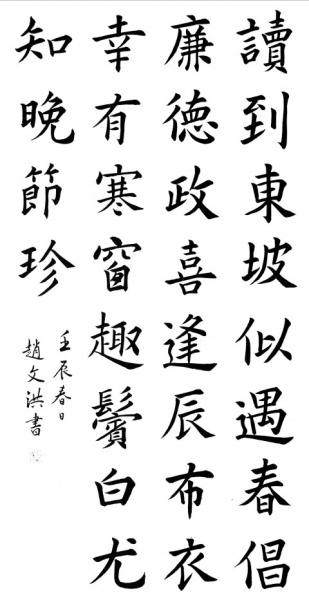 讀到東坡似遇春倡
廉德政喜逢辰布衣
幸有寒窗趣鬢白尤
知晚節珍
壬辰春日
趙文洪書